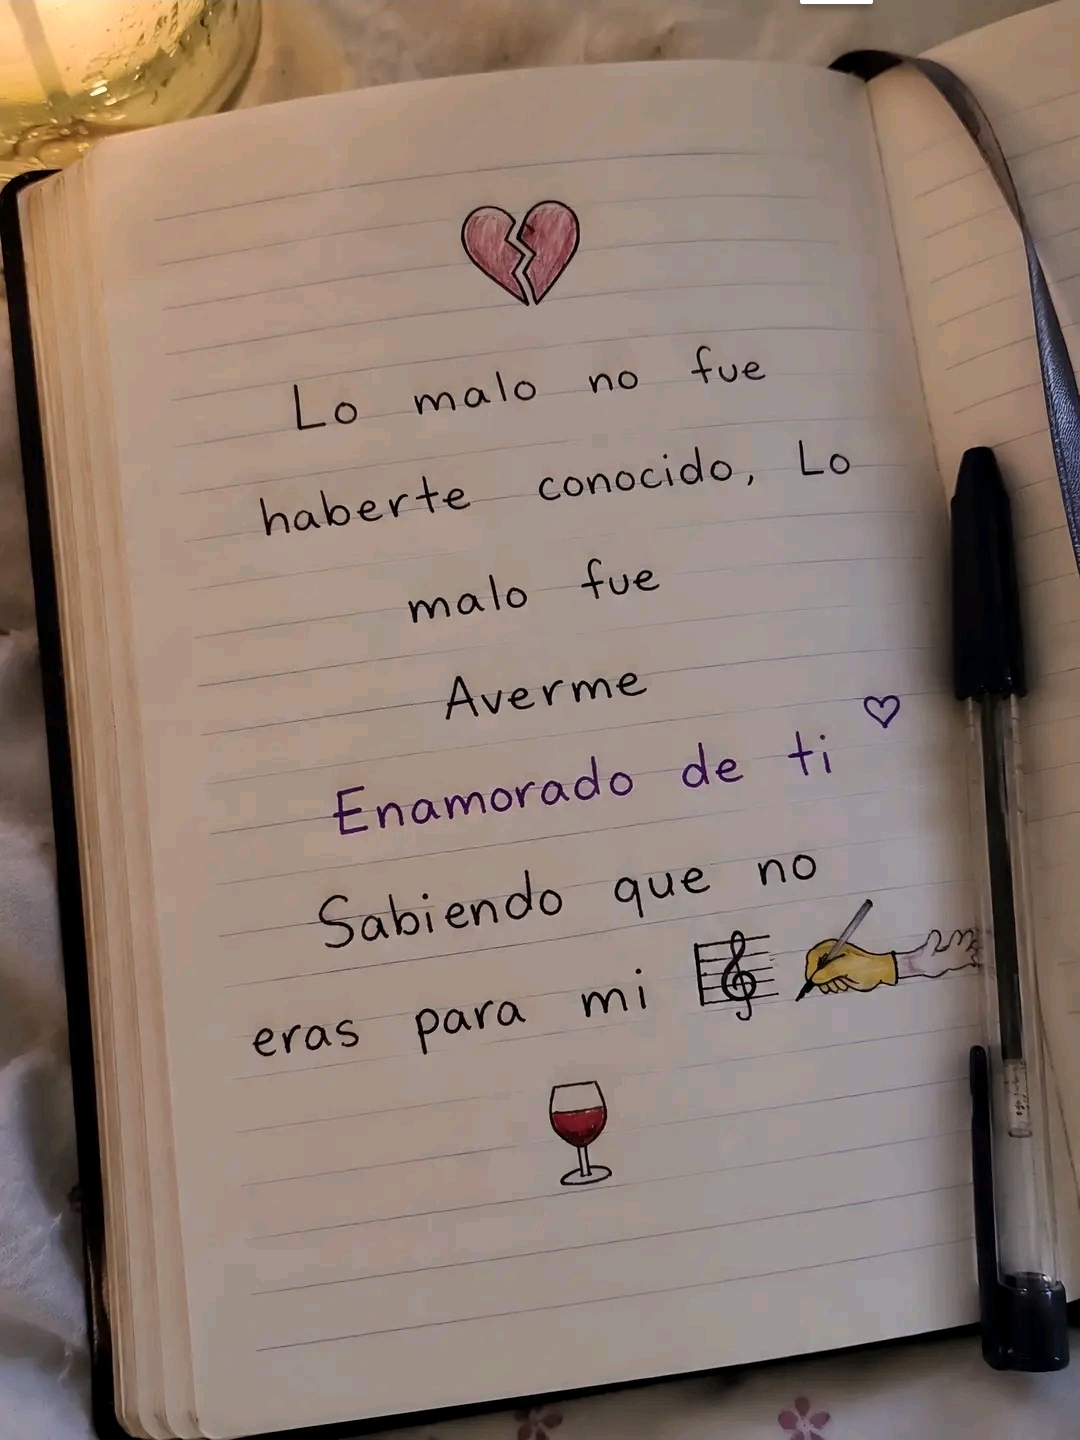 Lo malo no fue
haberte conocido, Lo
malo fue
Averme
Enamorado de ti
Sabiendo que no
eras para mi